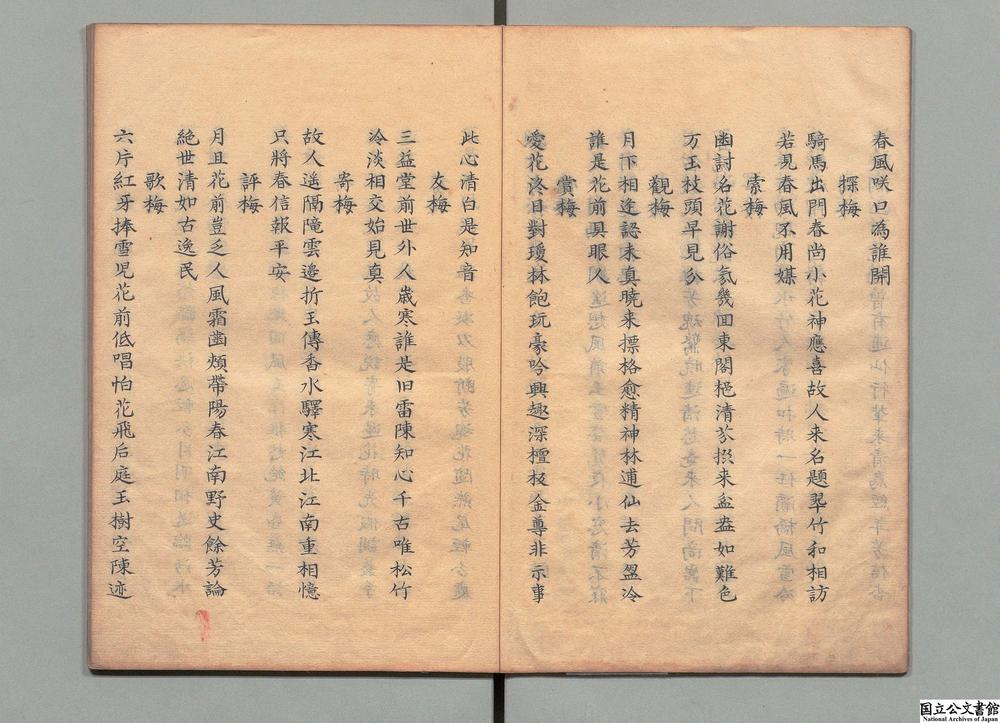 春風咲口為誰開
探梅
騎馬出門春尚小花神應喜故人来名題翠竹和相訪
若見春風不用媒
索梅
幽討名花謝俗氛幾回東閣挹清芬掞来盆盎如難色
万玉枝頭早見分
觀梅
月下相逢認未真暁来標格愈精神林逋仙去芳盟冷
誰是花前具眼人
賞梅
愛花泠日對瓊林飽玩豪吟興趣深檀板金尊非示事
此心清白是知音
友梅
三益堂前世外人歳寒誰是旧雷陳知心千古唯松竹
冷淡相交始見真
寄梅
故人遥隔隴雲邉折玉傳香水驛寒江北江南重相憶
只將春信報平安
評梅
月旦花前豈乏人風霜齒頰帶陽春江南野史餘芳論
絶世清如古逸民
歌梅
六片紅牙捧雪児花前低唱怕花飛后庭玉樹空陳迹
国立公文書館
National Archives of Japan